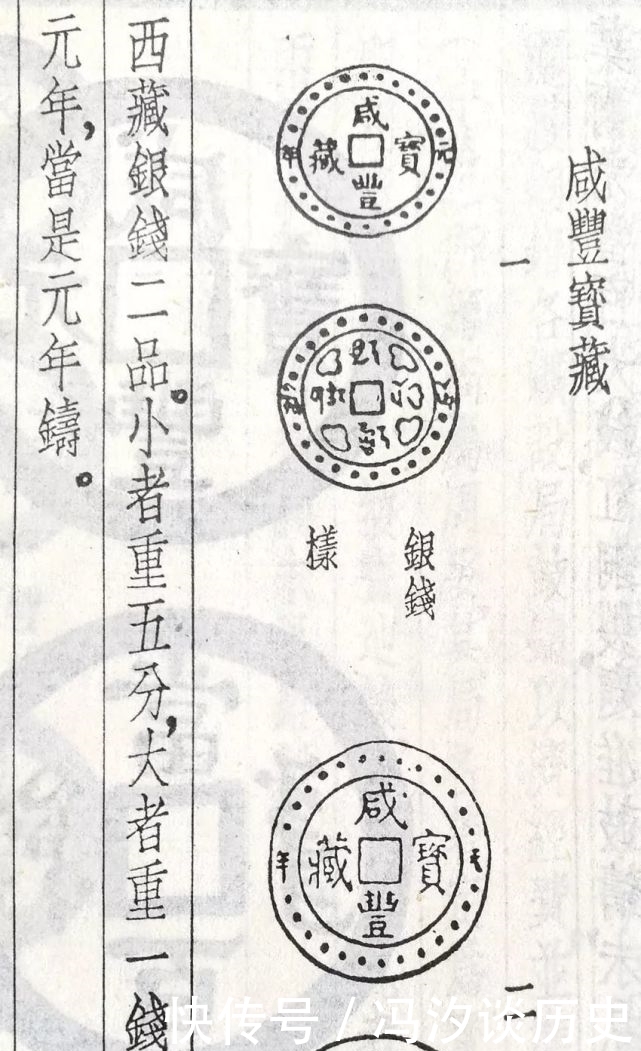 咸豐寶藏
一
咸豐寶藏
元年
銀錢
樣
二
咸豐寶藏
元年
西藏銀錢二品。小者重五分,大者重一錢
元年,當是元年鑄。
快传号/冯汐谈历史